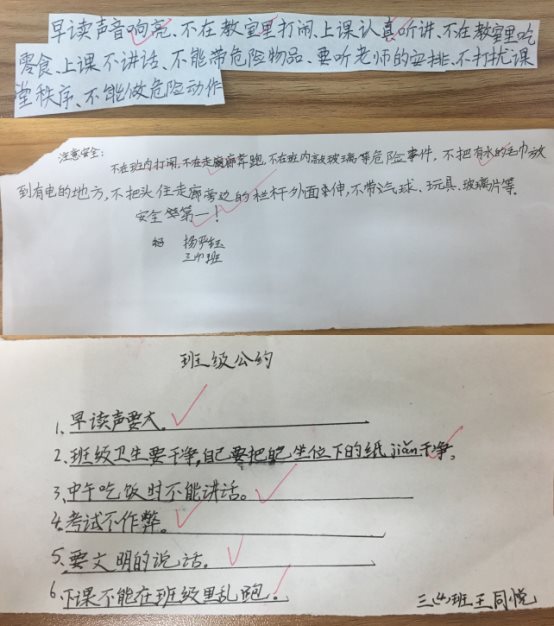 早读声音响亮、不在教室里打闹、上课认真听讲、不在教室里吃
零食、上课不讲话、不能带危险物品、要听老师的安排、不打扰课
堂秩序、不能做危险动作
注意安全:
不在班内打闹,不在走廊奔跑,不在班内敲玻璃等危险事件,不把有水的毛巾放
到有电的地方,不把头往走廊旁边的栏杆外面伸,不带汽球、玩具、玻璃片等.
安全第一!
三(4)班
班级公约
1、早读声要大。
2、班级卫生要干净,自己要把自己坐位下的纸jiǎn干净。
3、中午吃饭时不能讲话。
4、考试不作弊。
5、要文明的说话。
6、下课不能在班级里乱跑。
三(4)班王同悦